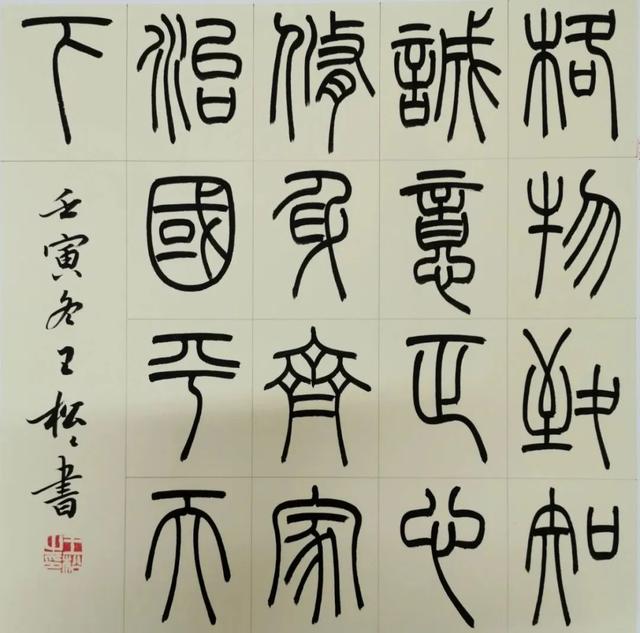 格物致知
誠意正心
修身齊家
治國平天
下
壬寅冬王松〻書